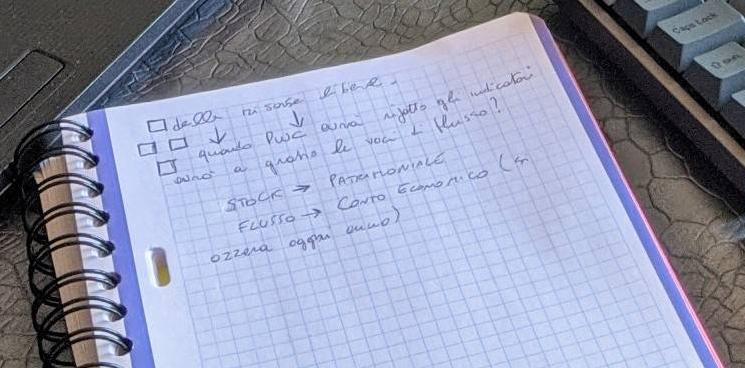 delle risorse libere.
quando PWC avrà rifatto gli indicatori
avrò a gratis le voci di flusso?
STOCK → PATRIMONIALE
FLUSSO → CONTO ECONOMICO (si
azzera ogni anno)
Caps Lock